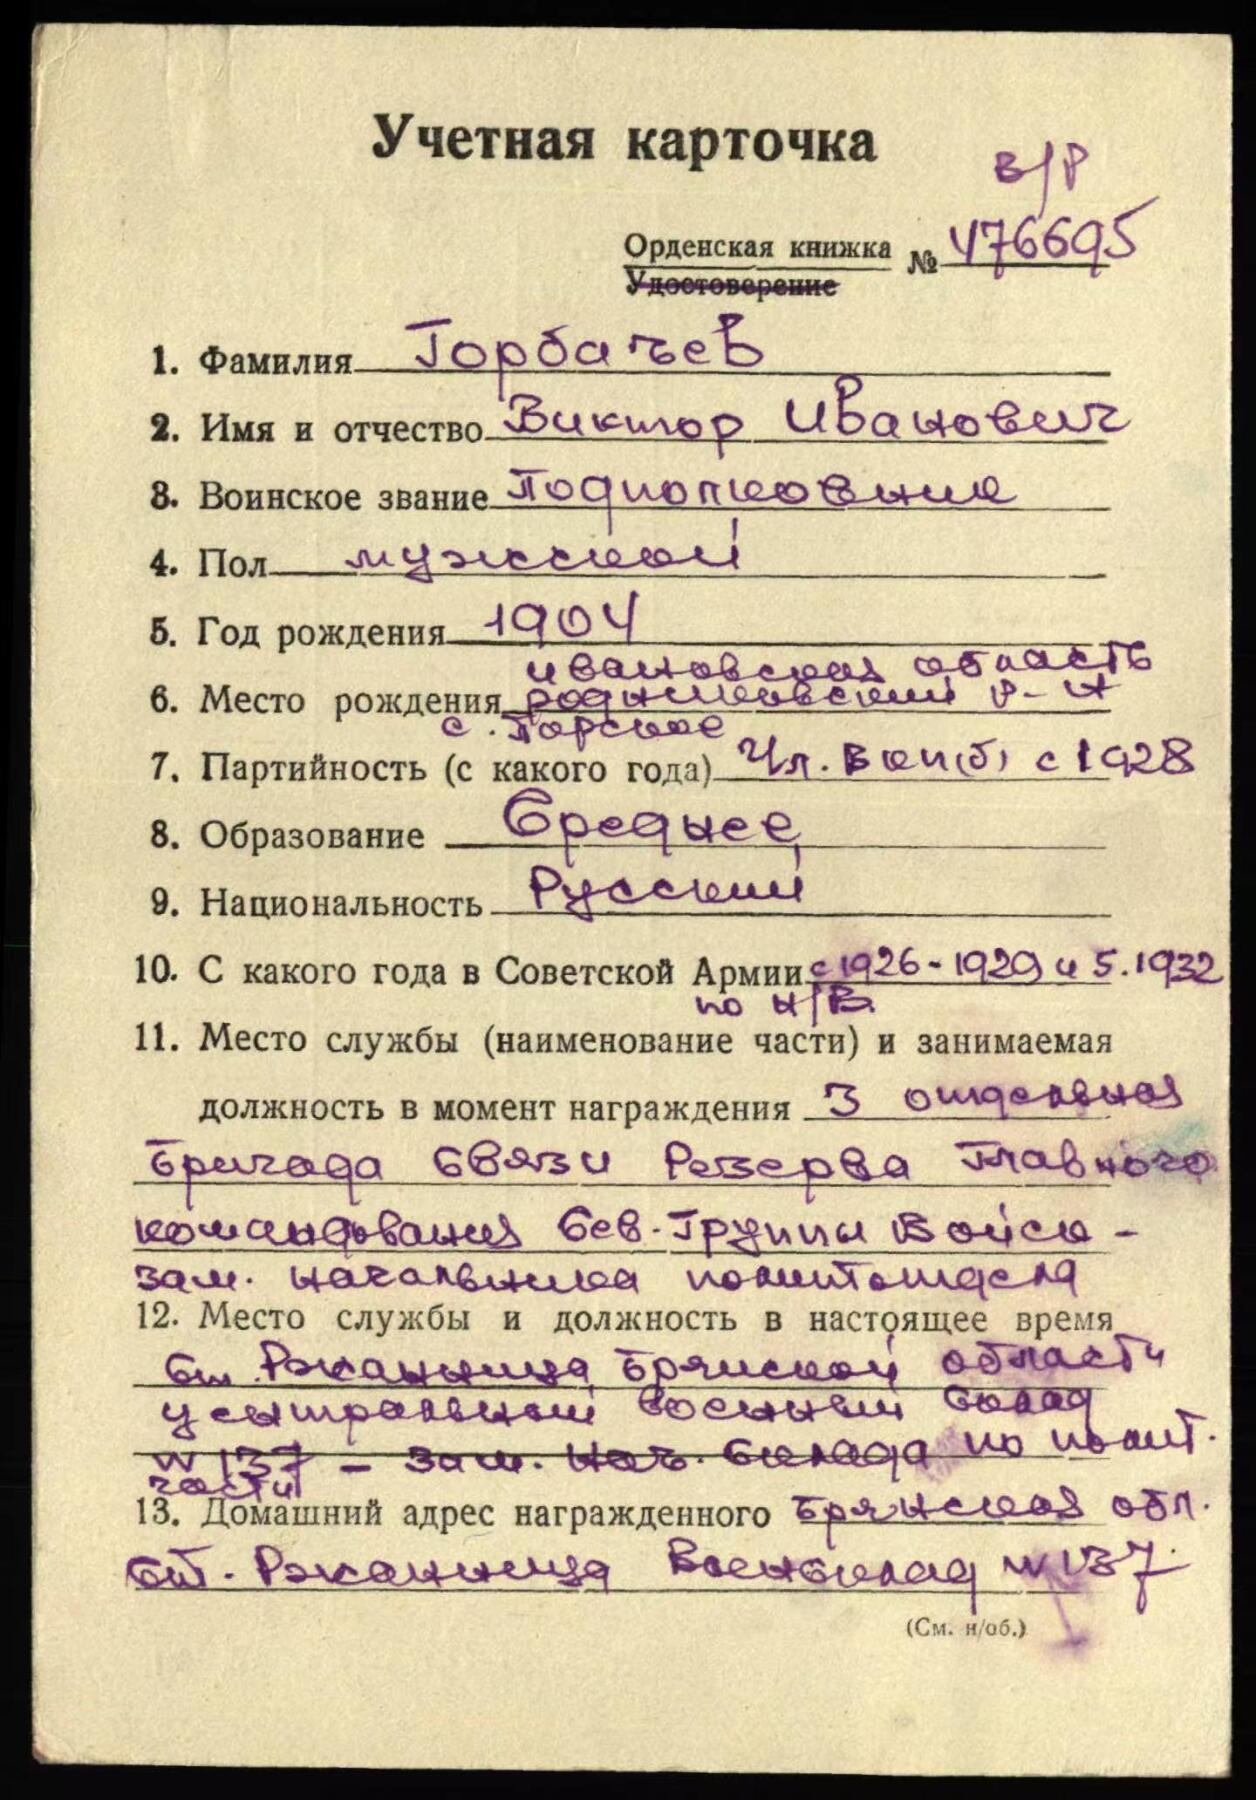 Учетная карточка
в/р
Орденская книжка № 476695
Удостоверение
1. Фамилия Горбачев
2. Имя и отчество Виктор Иванович
3. Воинское звание Подполковник
4. Пол мужской
5. Год рождения 1904
ивановская область
6. Место рождения родниковский р-н
с. Горское
7. Партийность (с какого года) Чл. ВКП(б) с 1928
8. Образование Среднее
9. Национальность Русский
10. С какого года в Советской Армии с 1926-1929 и 5.1932
по н/в.
11. Место службы (наименование части) и занимаемая
должность в момент награждения 3 отдельная
Бригада связи Резерва Главного
командования Сев. Группы Войск -
зам. начальника политотдела
12. Место службы и должность в настоящее время
ст. Ржаница Брянской области
центральный военный склад
N 137 - зам. нач. склада по полит.
части
13. Домашний адрес награжденного Брянская обл.
ст. Ржаница Военсклад N 137
(См. н/об.)